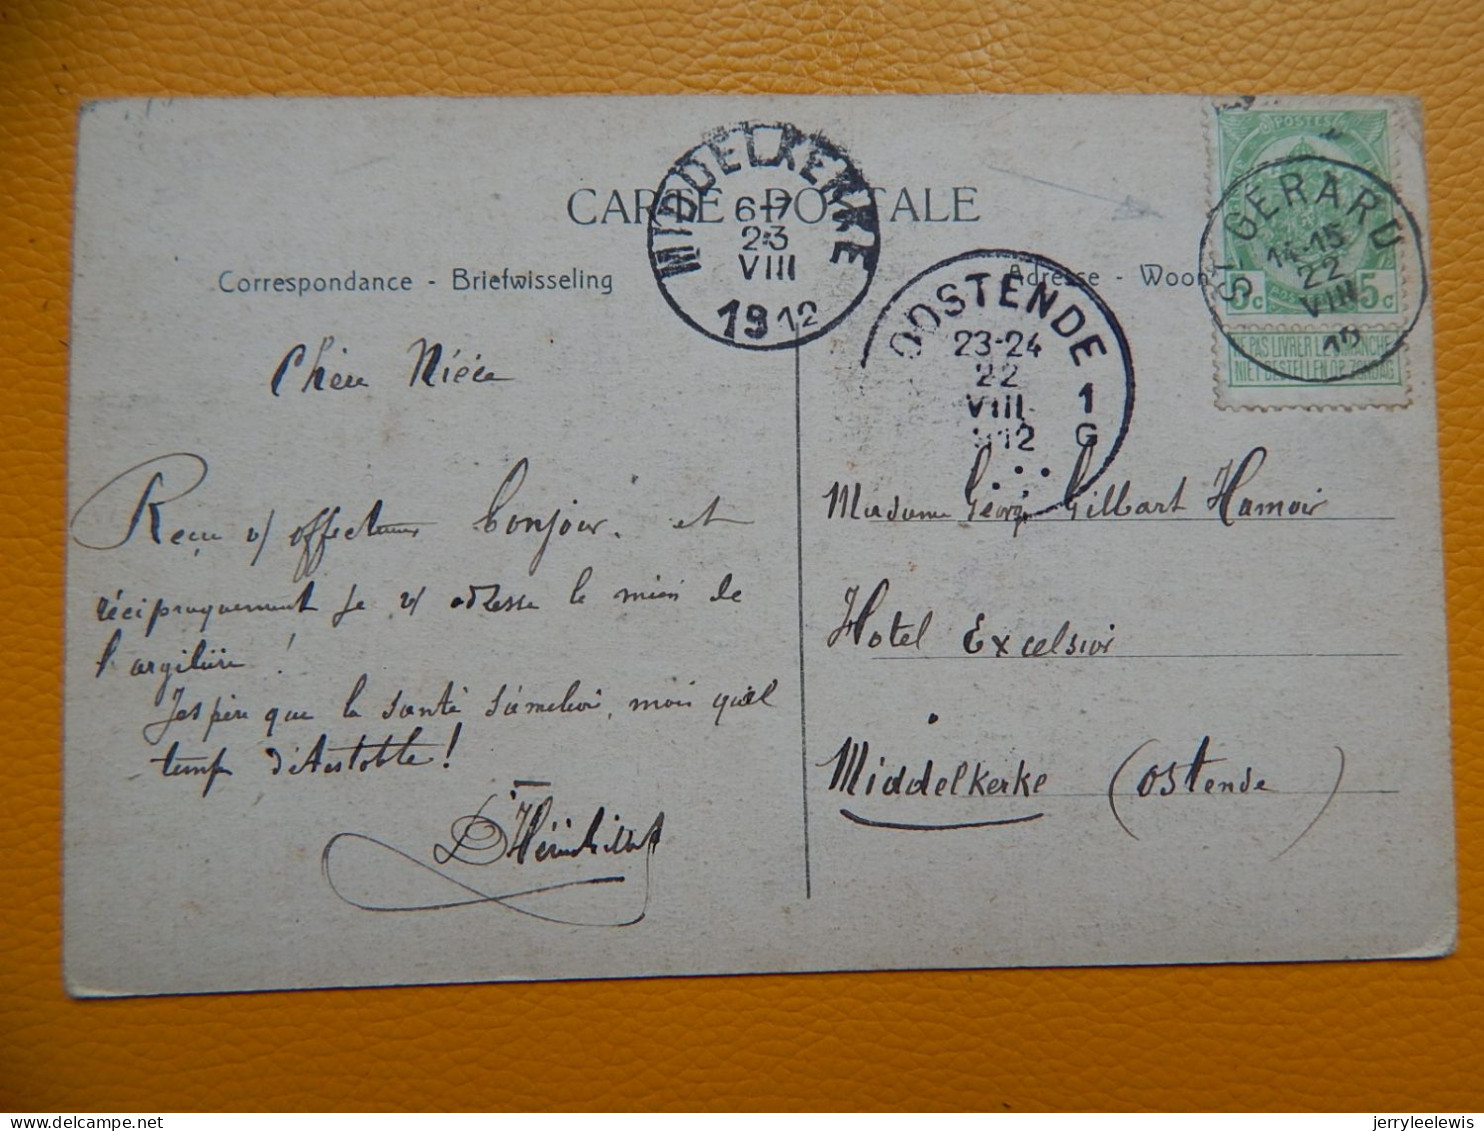 CARTE POSTALE
Correspondance - Briefwisseling
Adresse - Woon
MIDDELKERKE
6-7
23
VIII
1912
OOSTENDE
23-24
22
VIII
12
1
G
ST GERARD
14-15
22
VIII
POSTES
5c 5c
NE PAS LIVRER LE DIMANCHE
NIET BESTELLEN OP ZONDAG
Chère Nièce
Reçu v/ affectueux bonjour. et
réciproquement je v/ adresse le mien de
l'argilière !
J'espère que la santé s'améliore, mais quel
temps d'Aristotte !
Madame Georges Gilbart Hamoir
Hotel Excelsior
Middelkerke (Ostende)
jerryleelewis